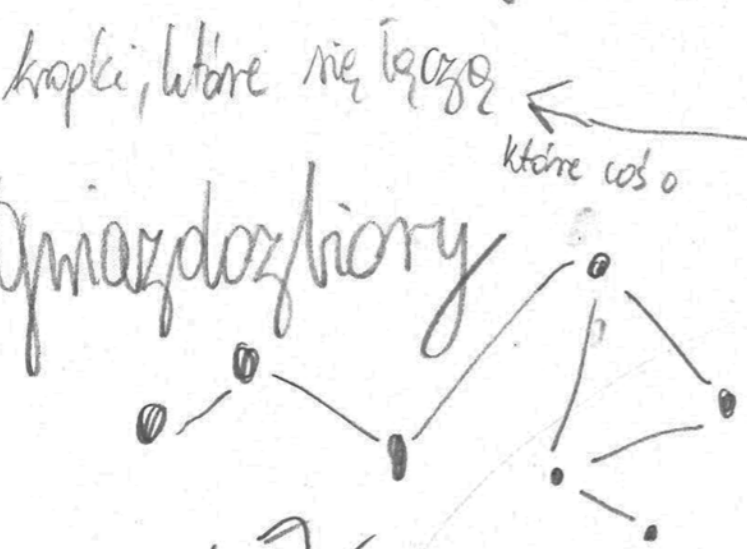 kropki, które się łączą
które coś o
gwiazdozbiory